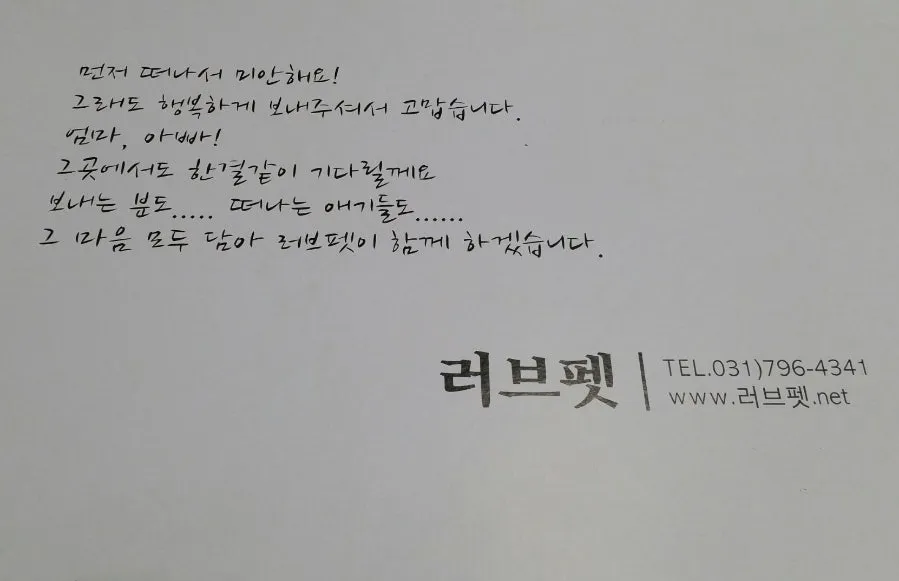 먼저 떠나서 미안해요!
그래도 행복하게 보내주셔서 고맙습니다.
엄마, 아빠!
그곳에서도 한결같이 기다릴께요
보내는 분도..... 떠나는 애기들도......
그 마음 모두 담아 러브펫이 함께 하겠습니다.
러브펫 | TEL.031)796-4341
www.러브펫.net